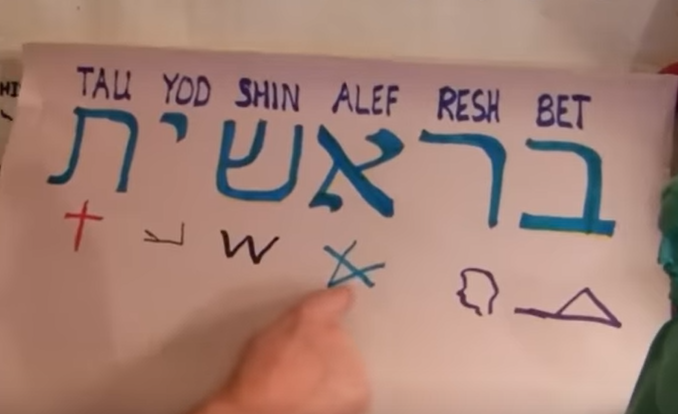 TAU YOD SHIN ALEF RESH BET
בראשית